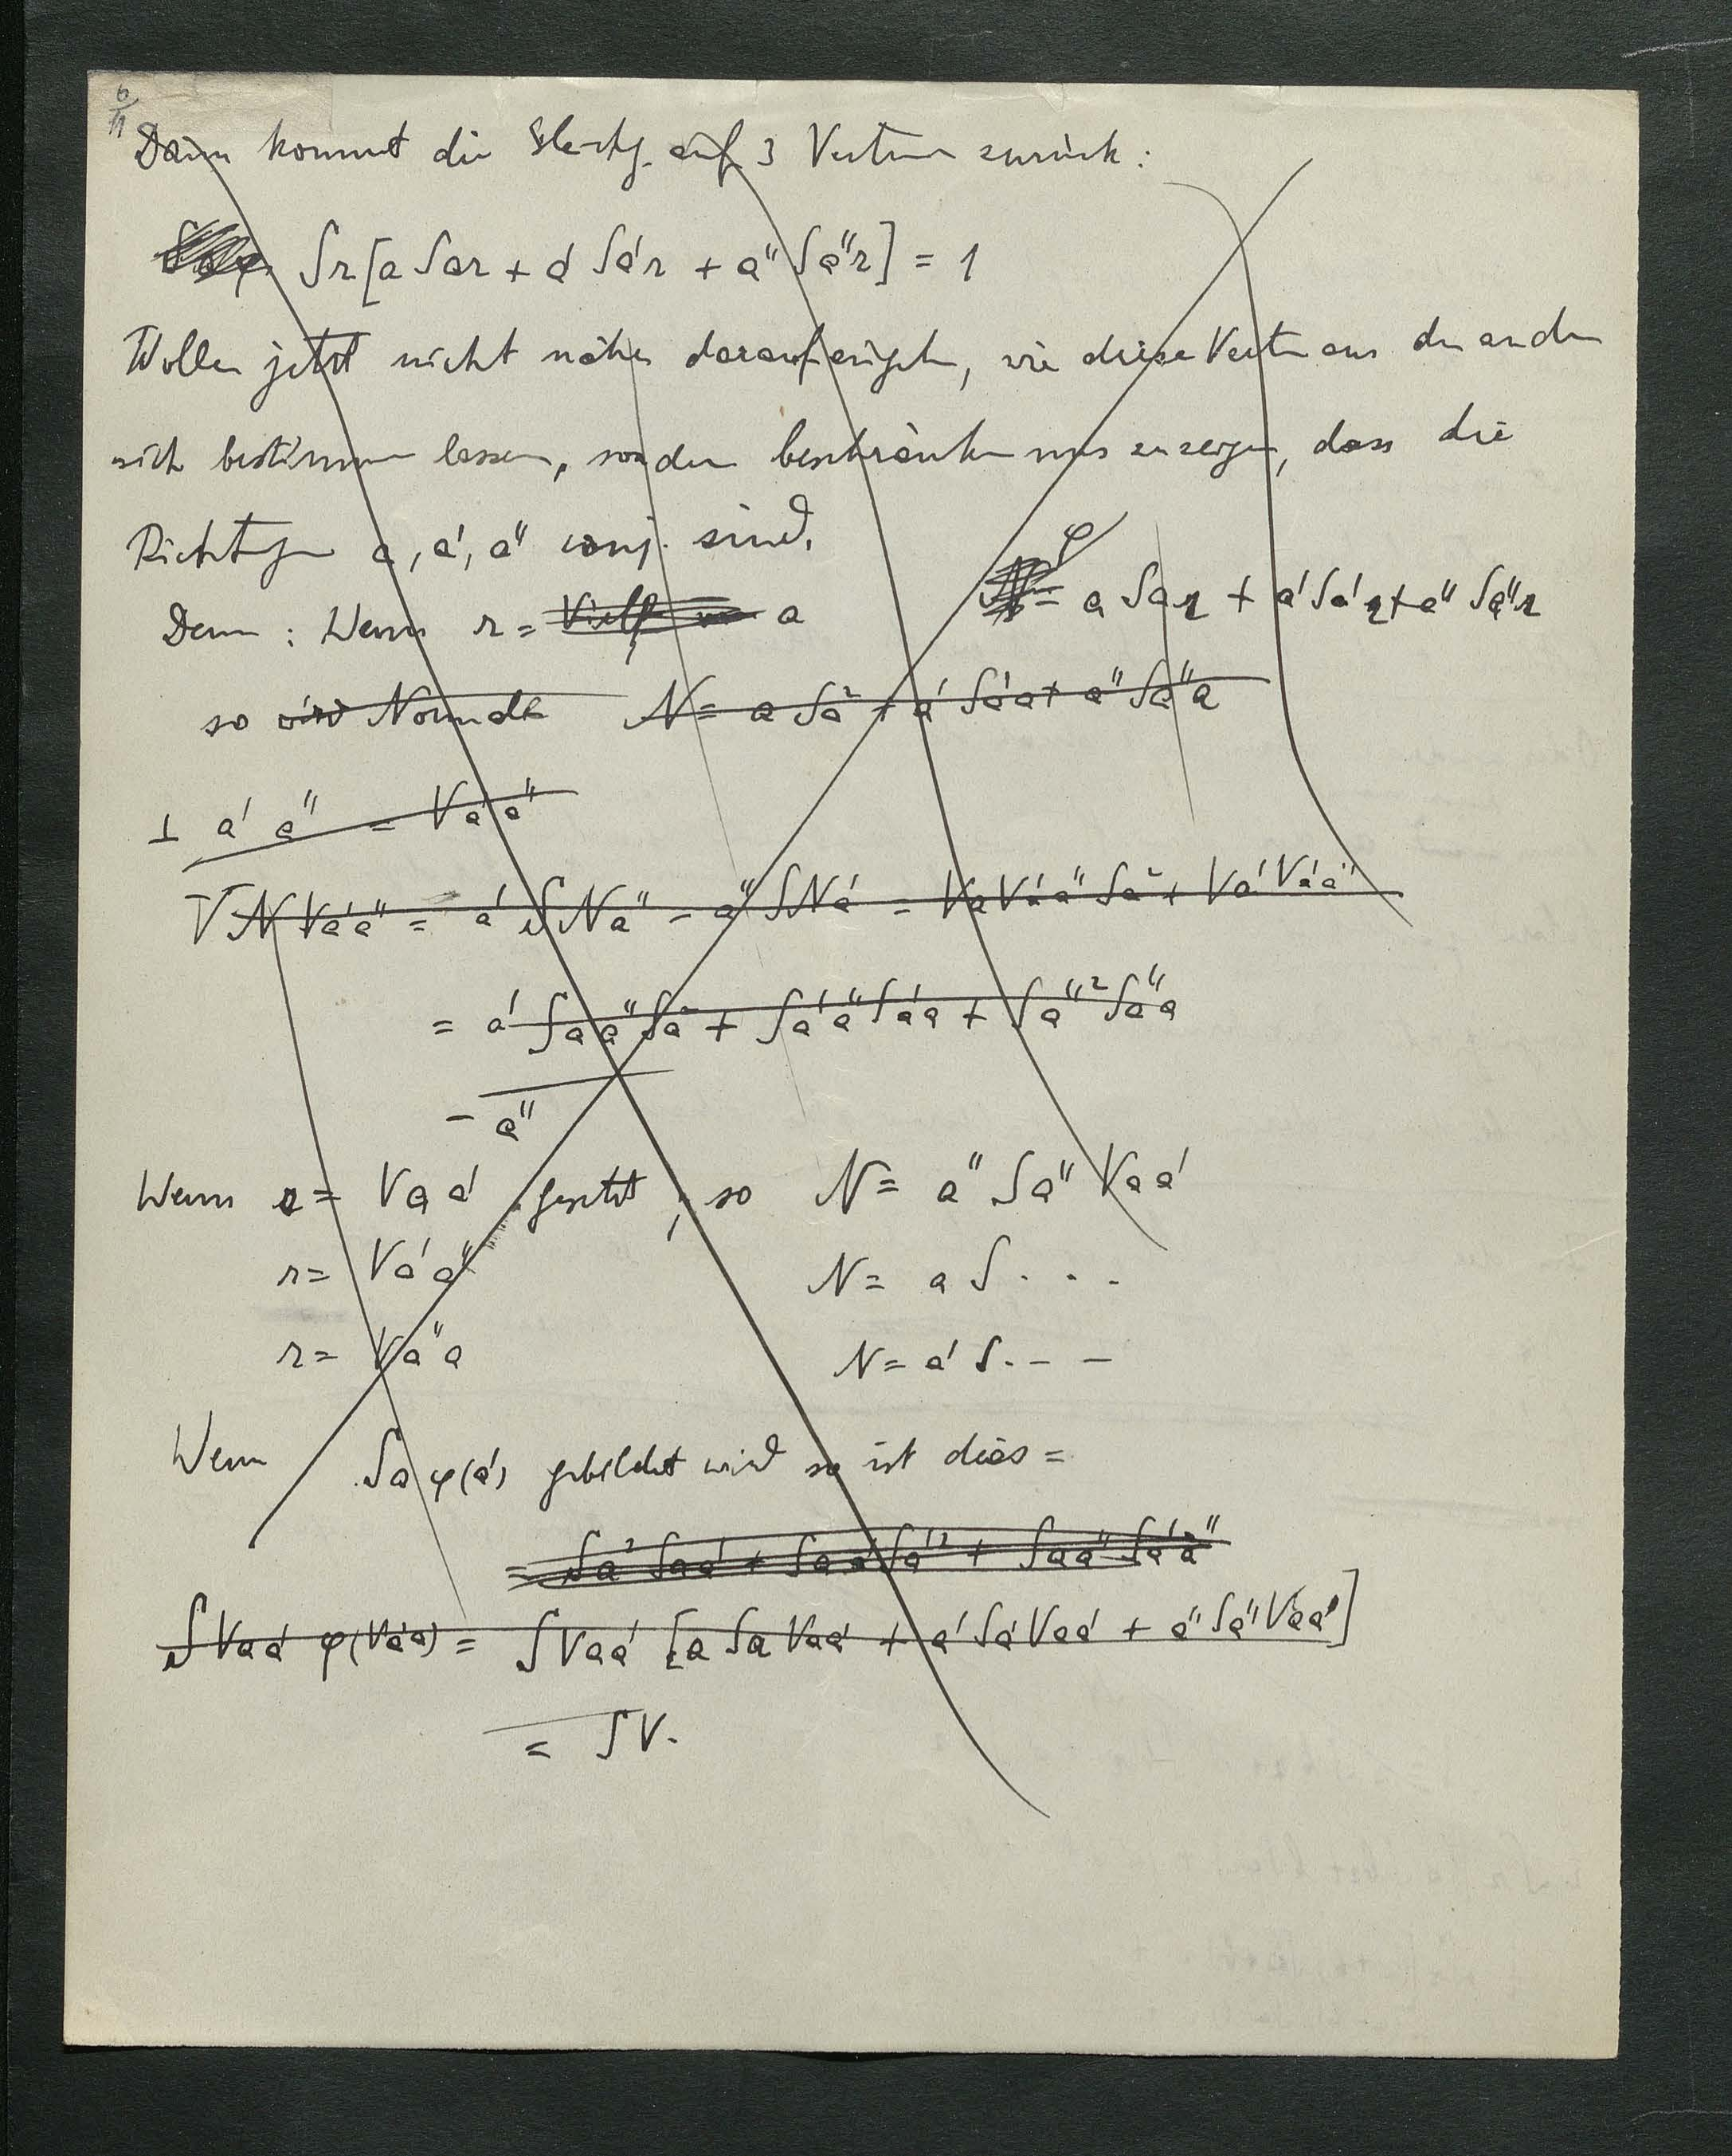 6/11
Dann kommt die Gleichg. auf 3 Vektoren zurück:
Sr[a Sar + a' Sa'r + a'' Sa''r] = 1
Wollen jetzt nicht näher darauf eingehen, wie diese Vektoren aus den anderen
sich bestimmen lassen, sondern beschränken uns zu zeigen, dass die
Richtungen a, a', a'' conj. sind.
φ = a Sar + a' Sa'r + a'' Sa''r
Denn : Wenn r = Vielf a
so wird Normale N = a Sa² + a' Sa'a + a'' Sa''a
⊥ a' a'' = Va'a''
VN Va'a'' = a' SNa'' - a'' SNa' = VaVa'a'' Sa² + Va'Va'a''
= a' Saa''Sa² + Sa'a''Sa'a + Sa''²Sa''a
- a''
Wenn r = Vaa' gesetzt, so N = a'' Sa'' Vaa'
r = Va'a'' N = a S . . .
r = Va''a N = a' S . - -
Wenn Sa φ(a') gebildet wird so ist dies =
= Sa² Saa' + Saa' Sa'² + Saa'' Sa'a''
SVaa' φ(Va'a) = SVaa' [a Sa Vaa' + a' Sa' Vaa' + a'' Sa'' Vaa']
= SV.